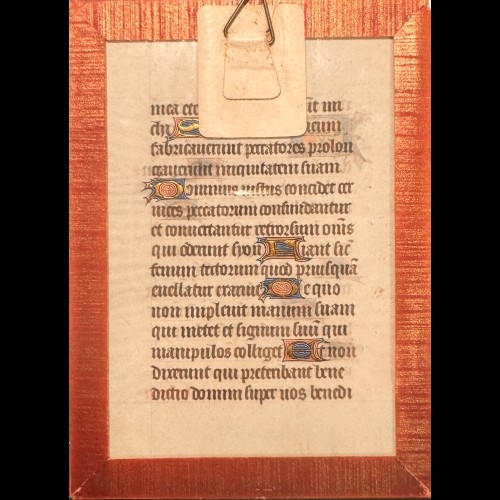 mea ete mi
chi S eum
fabricauerunt peccatores prolon
gauerunt iniquitatem suam
Dominus iustus concidet cer
uices peccatorum confundantur
et conuertantur retrorsum om̄s
qui oderunt syon Fiant sic̄
fenum tectorum quod priusquā
euellatur exaruit De quo
non impleuit manum suam
qui metet et signum suū qui
manipulos colliget Et non
dixerunt qui preteribant bene
dictio domini super uos benedi